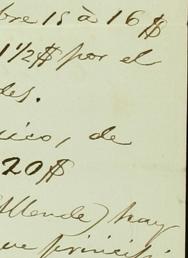 bre 15 à 16$
1 1/2$ por el
des.
ico, de
20$
Allende) hay
que princip